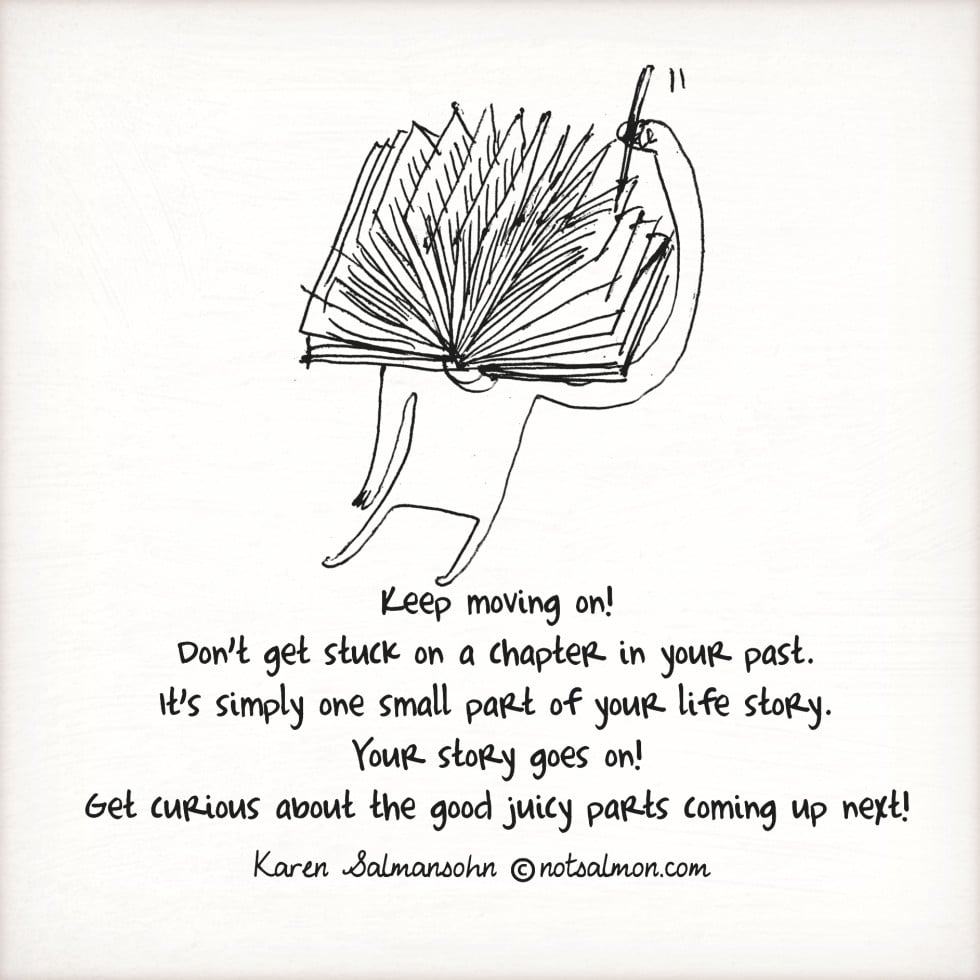 Keep moving on!
Don't get stuck on a chapter in your past.
It's simply one small part of your life story.
Your story goes on!
Get curious about the good juicy parts coming up next!
Karen Salmansohn ©notsalmon.com